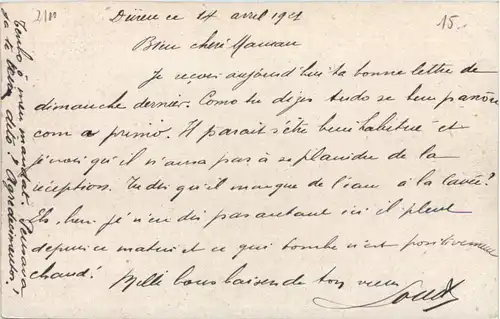 2111
15.
Düren ce 14 avril 1921
Bien chère Maman
Je reçois aujourd'hui ta bonne lettre de
dimanche dernier. Como tu dizes tudo se bem passou
com a primo. Il parait s'être bien habitué et
je crois qu'il n'aura pas à se plaindre de la
réception. Tu dis qu'il manque de l'eau à la cavée?
Eh, bien je n'en dis pas autant ici il pleut
depuis ce matin et ce qui tombe n'est positivement
chaud!
Mille bons baisers de ton vieux
Tenho o meu mandat.
já te dito? Agradecimentos!